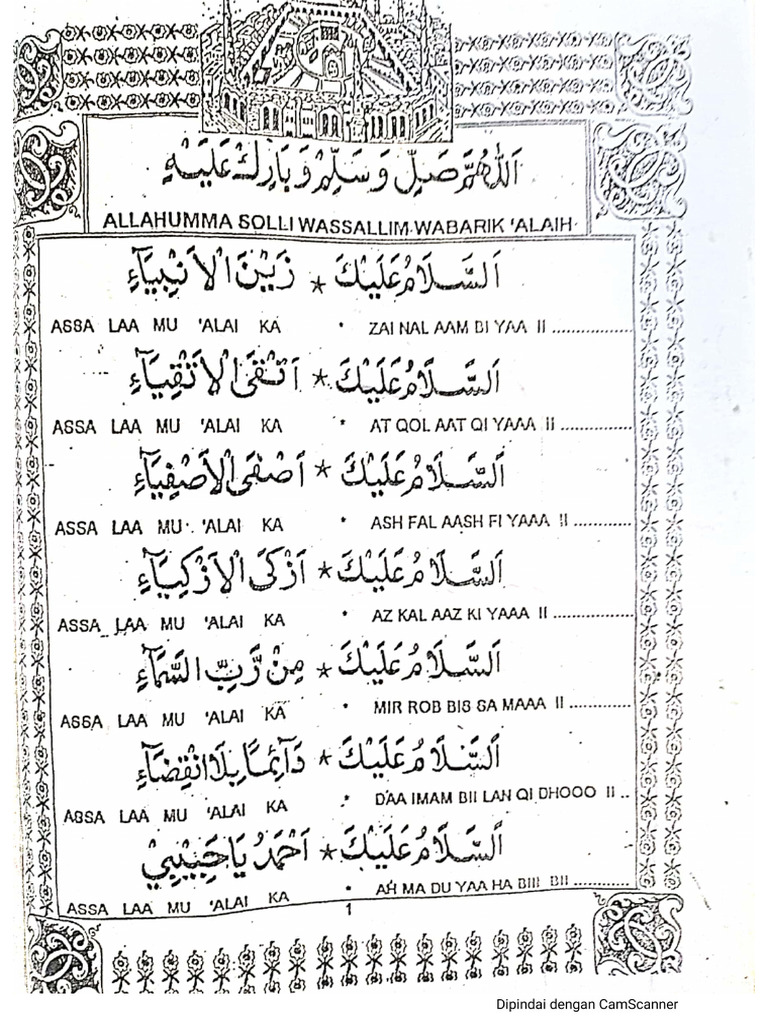 اَللّٰهُمَّ صَلِّ وَسَلِّمْ وَبَارِكْ عَلَيْهِ
ALLAHUMMA SOLLI WASSALLIM WABARIK 'ALAIH
اَلسَّلَامُ عَلَيْكَ * زَيْنَ الْاَنْبِيَآءِ
ASSA LAA MU 'ALAI KA * ZAI NAL AAM BI YAA II ...............
اَلسَّلَامُ عَلَيْكَ * اَتْقَى الْاَتْقِيَآءِ
ASSA LAA MU 'ALAI KA * AT QOL AAT QI YAAA II .............
اَلسَّلَامُ عَلَيْكَ * اَصْفَى الْاَصْفِيَآءِ
ASSA LAA MU 'ALAI KA * ASH FAL AASH FI YAAA II ............
اَلسَّلَامُ عَلَيْكَ * اَزْكَى الْاَزْكِيَآءِ
ASSA LAA MU 'ALAI KA * AZ KAL AAZ KI YAAA II ...............
اَلسَّلَامُ عَلَيْكَ * مِنْ رَّبِّ السَّمَآءِ
ASSA LAA MU 'ALAI KA * MIR ROB BIS SA MAAA II ............
اَلسَّلَامُ عَلَيْكَ * دَآئِمًا بِلَا انْقِضَآءِ
ASSA LAA MU 'ALAI KA * DAA IMAM BII LAN QI DHOOO II ..
اَلسَّلَامُ عَلَيْكَ * اَحْمَدُ يَا حَبِيْبِيْ
ASSA LAA MU 'ALAI KA * AH MA DU YAA HA BIII BII ...........
1
Dipindai dengan CamScanner